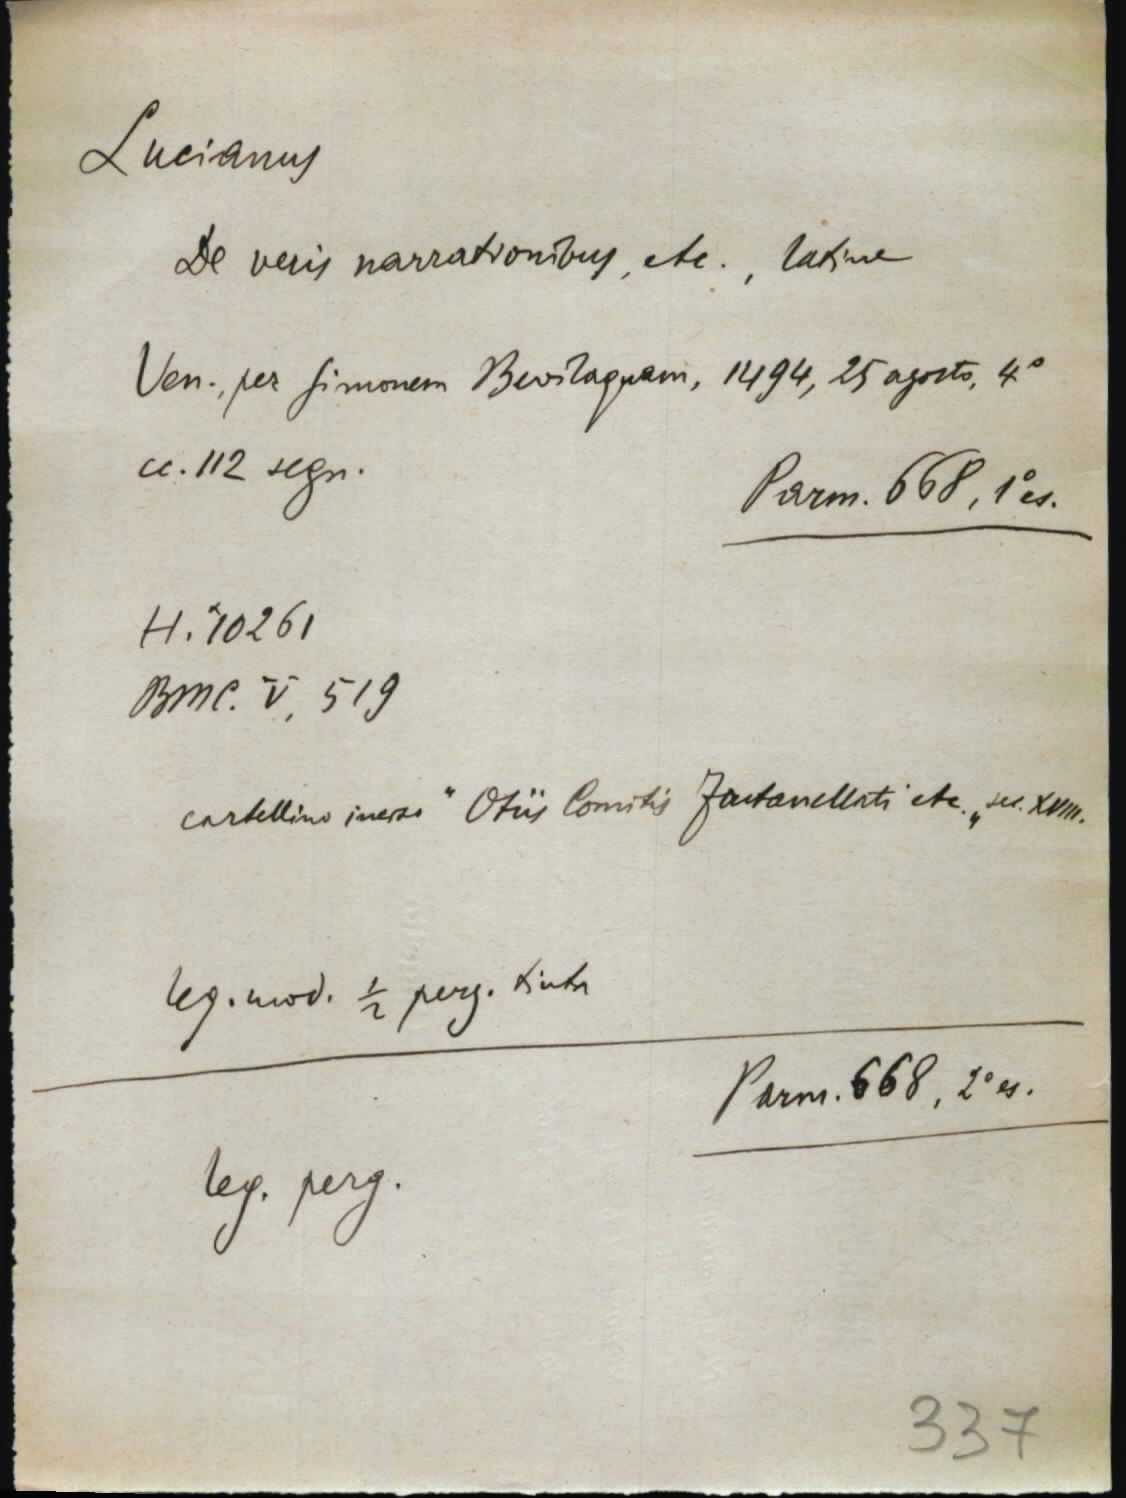 Lucianus
De veris narrationibus, etc., latine
Ven., per Simonem Bevilaquam, 1494, 25 agosto, 4°
cc. 112 segn.
Parm. 668, 1° es.
H.*10261
BMC. V, 519
cartellino inciso "Otiis Comitis Fontanellati etc." sec. XVIII.
leg. mod. ½ perg. tinta
Parm. 668, 2° es.
leg. perg.
337